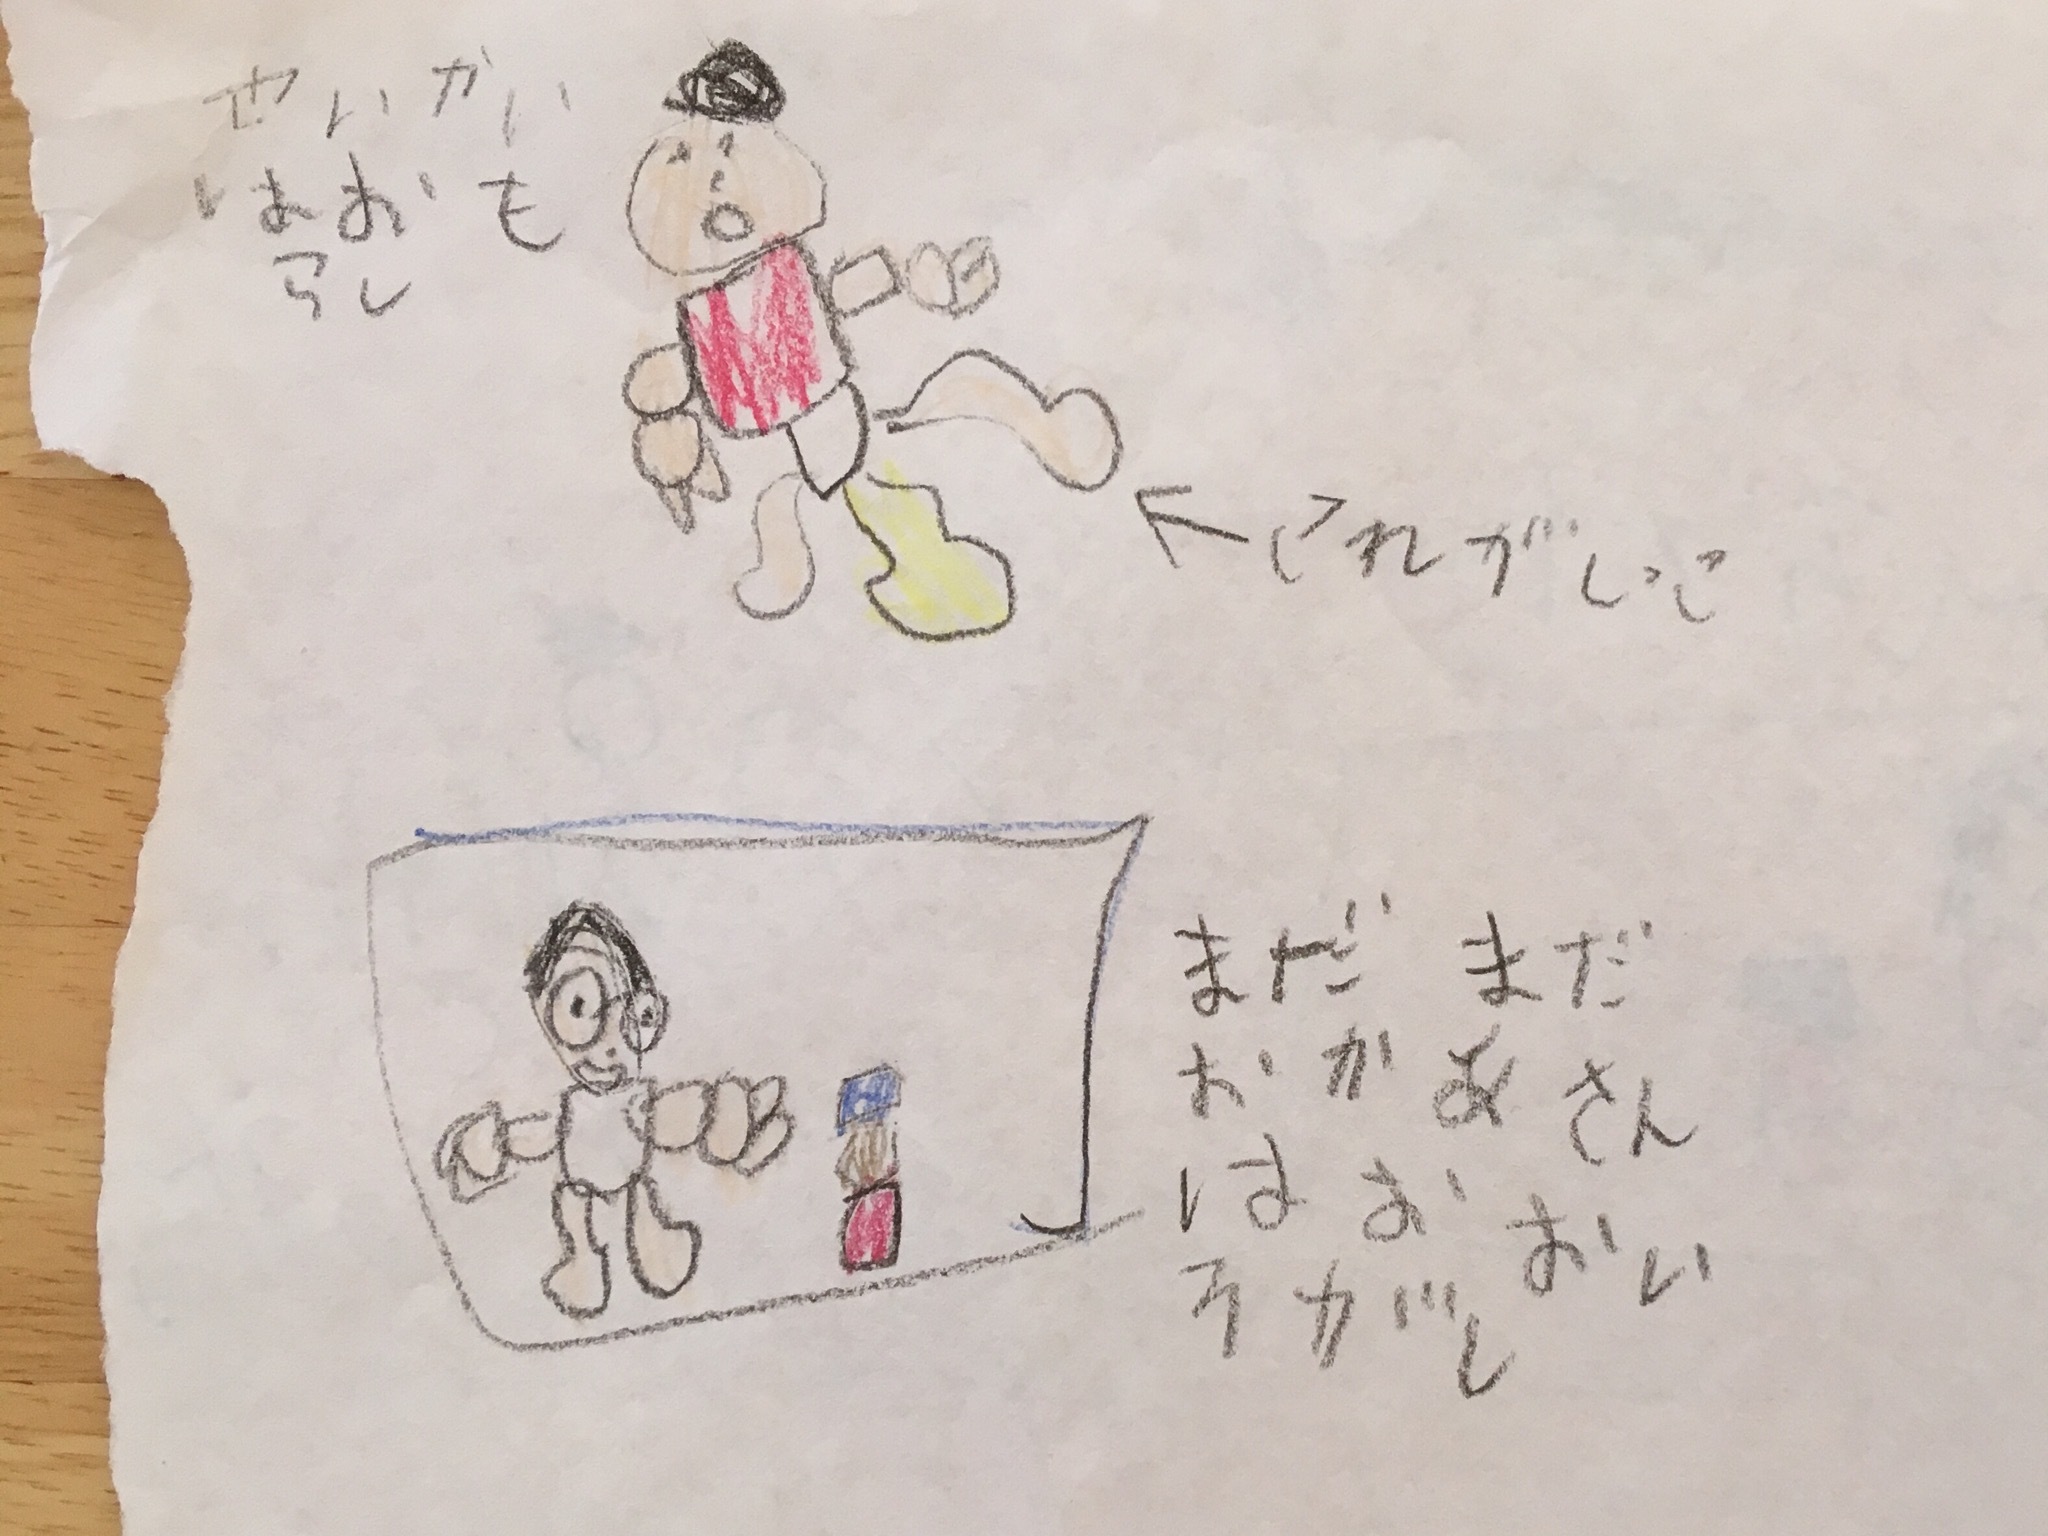 せいかい
はおも
らし
これがしっこ
まだまだ
おかあさん
はおおい
そがし